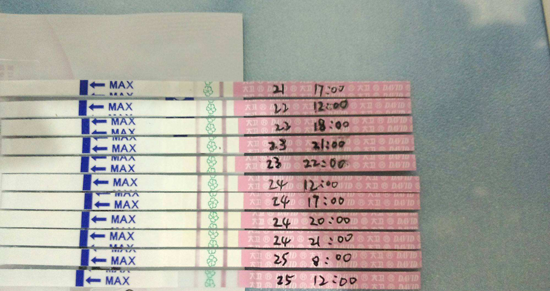 ← MAX 21 17:00
← MAX 22 12:00
← MAX 22 18:00
← MAX 23 21:00
← MAX 23 22:00
← MAX 24 12:00
← MAX 24 17:00
← MAX 24 20:00
← MAX 24 21:00
← MAX 25 8:00
← MAX 25 12:00